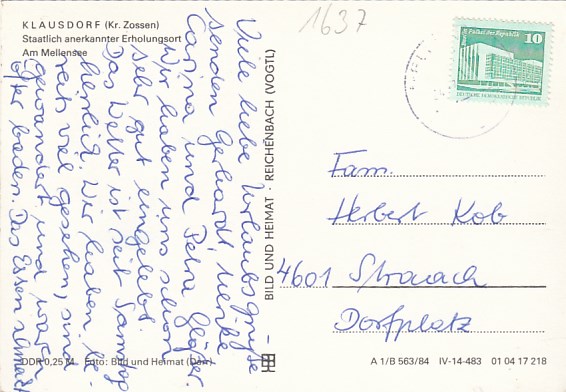 KLAUSDORF (Kr. Zossen)
Staatlich anerkannter Erholungsort
Am Mellensee
1637
Palast der Republik
10
DEUTSCHE DEMOKRATISCHE REPUBLIK
Viele liebe Urlaubsgrüße
senden Gerhardt, Ulrike
Carina und Petra Gläßer.
Wir haben uns schon
sehr gut eingelebt.
Das Wetter ist seit Samstag
herrlich. Wir haben be-
reits viel gesehen, sind
gewandert und waren
öfter baden. Das Essen schmeckt
BILD UND HEIMAT · REICHENBACH (VOGTL)
Fam.
Herbert Kob
4601 Straach
Dorfplatz
DDR 0,25 M Foto: Bild und Heimat
A 1/B 563/84 IV-14-483 01 04 17 218